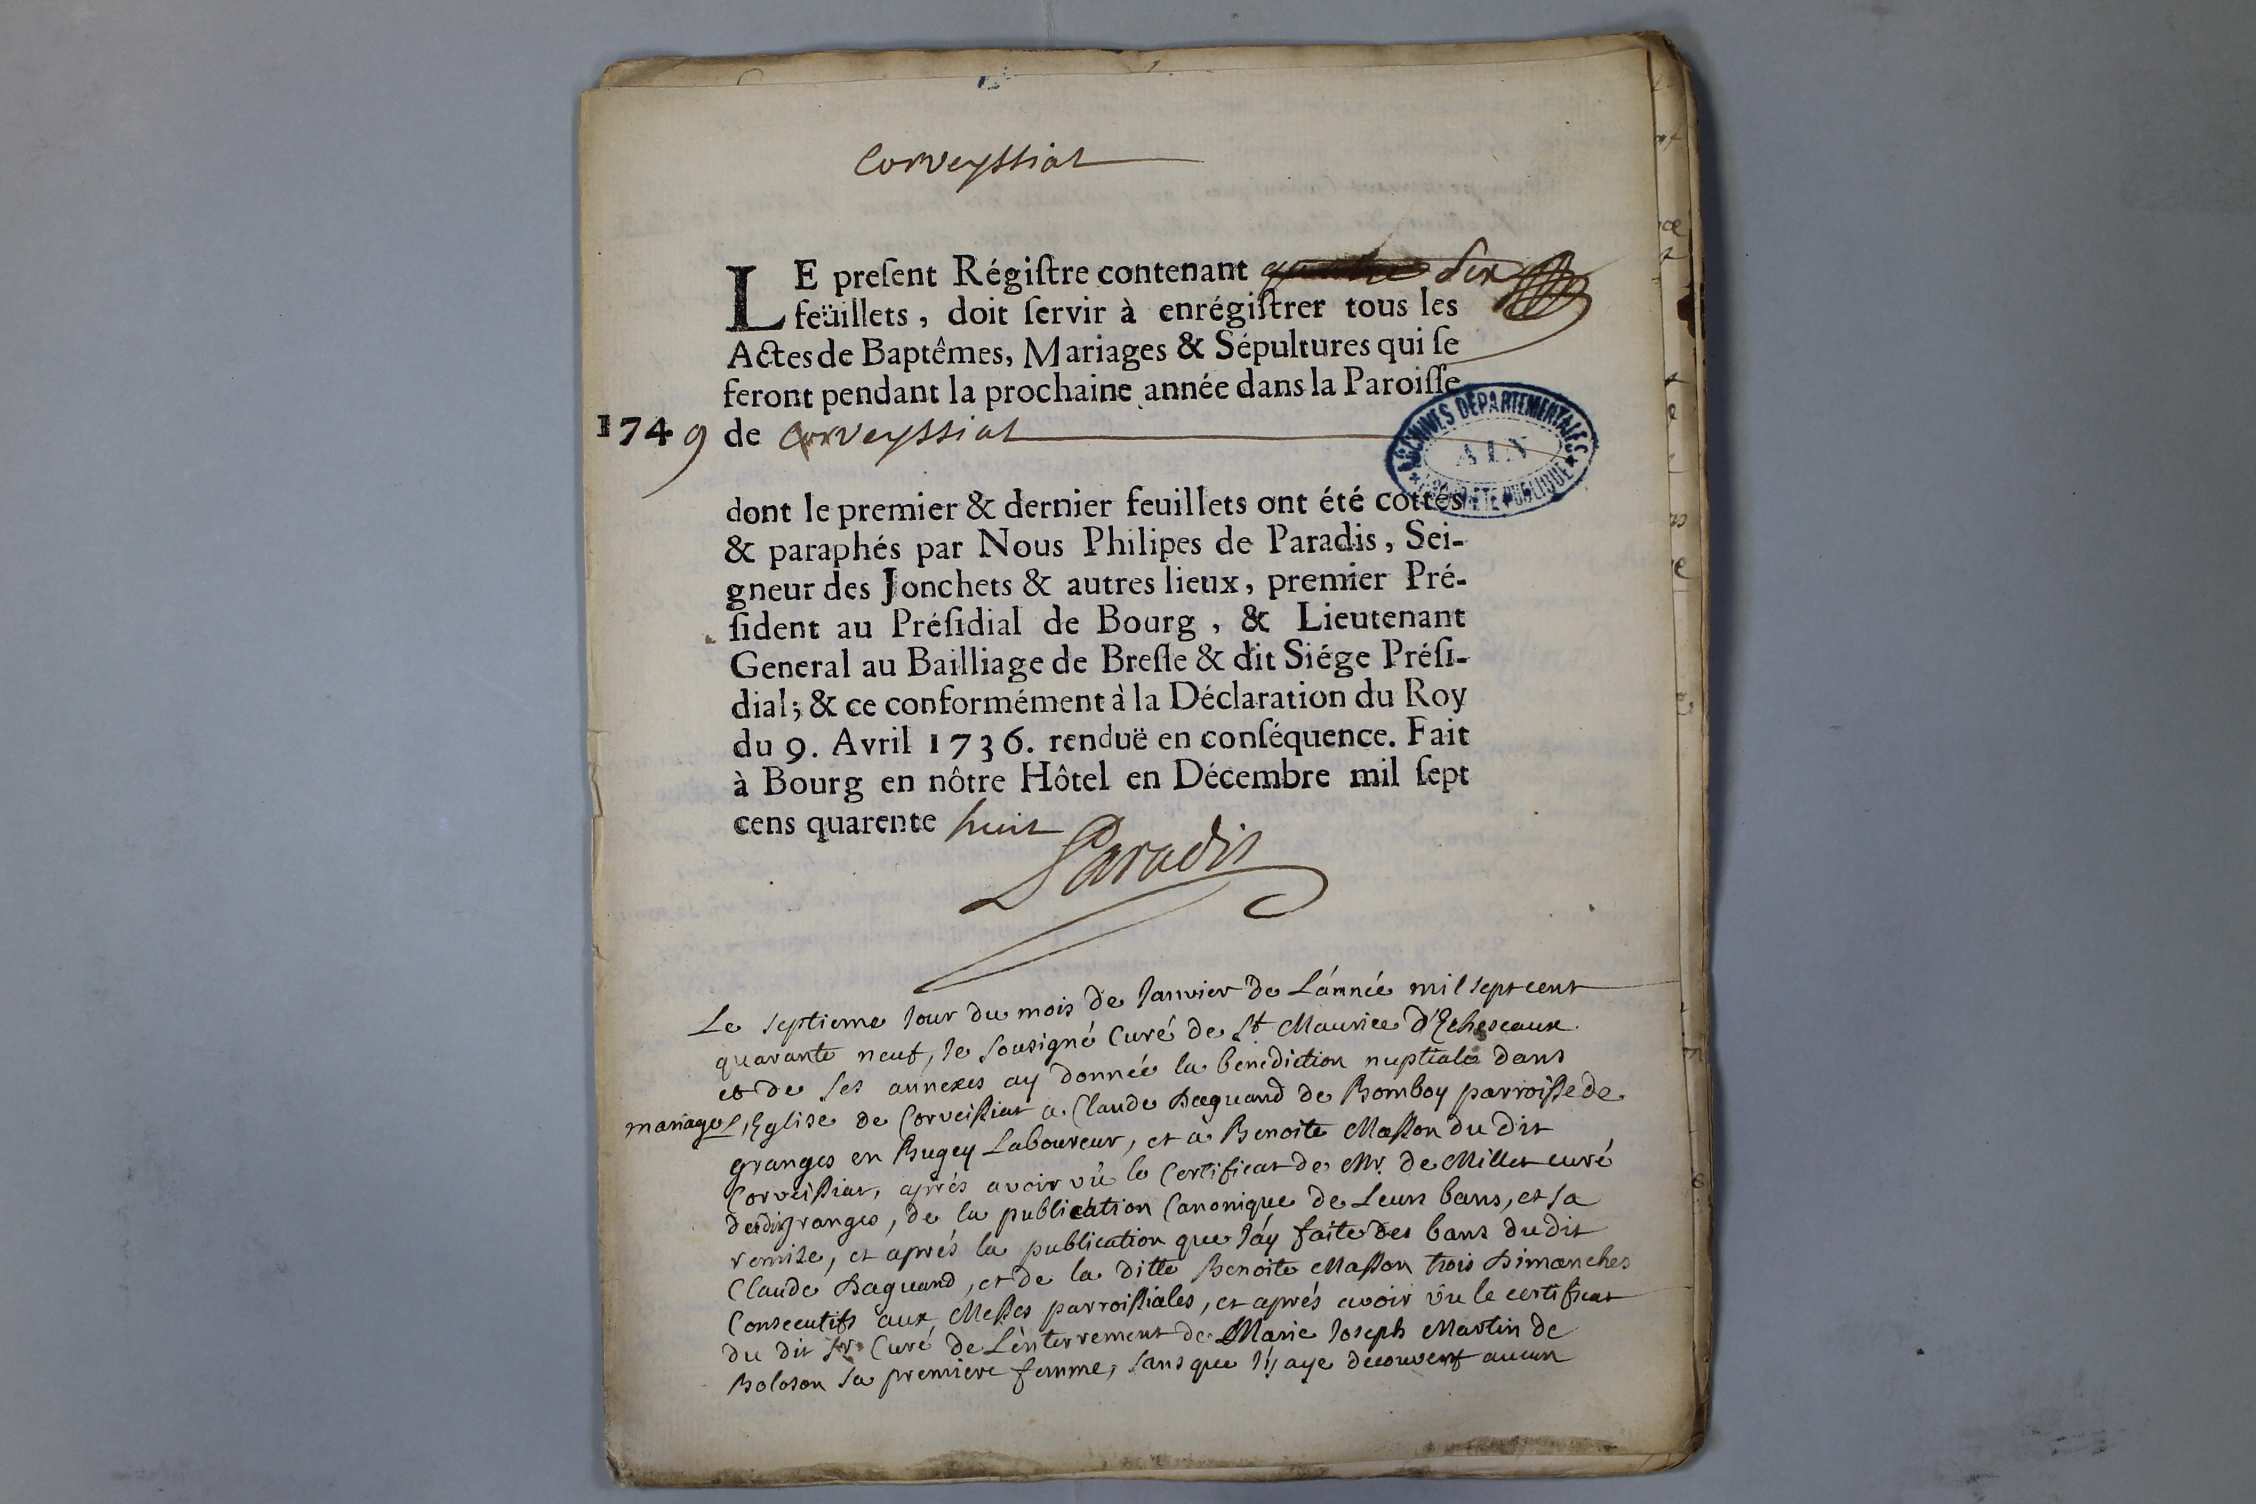 Corveyssiat
LE presentRégistre contenant quatre six
feüillets, doit servir à enrégistrer tous les
Actes de Baptêmes, Mariages & Sépultures qui se
feront pendant la prochaine année dans la Paroisse
1749 de Corveyssiat
ARCHIVES DÉPARTEMENTALES
AIN
PROPRIÉTÉ PUBLIQUE
dont le premier & dernier feuillets ont été cottés
& paraphés par Nous Philipes de Paradis, Sei-
gneur des Jonchets & autres lieux, premier Pré-
sident au Présidial de Bourg, & Lieutenant
General au Bailliage de Bresse & dit Siége Prési-
dial; & ce conformément à la Déclaration du Roy
du 9. Avril 1736. renduë en conséquence. Fait
à Bourg en nôtre Hôtel en Décembre mil sept
cens quarente huit
Paradis
Le septieme jour du mois de Janvier de L'année mil sept cent
quarante neuf, je sousigné Curé de St Maurice d'Echeseaux
et de ses annexes ay donnée la benediction nuptiale dans
mariage L'Eglise de Corveissiat a Claude Daguand de Bomboy parroisse de
granges en Bugey Laboureur, et à Benoite Masson du dit
Corveissiat, aprés avoir vû le Certificat de Mr. de Millet curé
desdit granges, de la publication Canonique de Leurs bans, et sa
remise, et aprés la publication que j'ay faite des bans du dit
Claude Daguand, et de la ditte Benoite Masson trois Dimanches
Consecutifs aux Messes parroissiales, et aprés avoir vu le certificat
du dit Sr. Curé de L'enterrement de Marie Joseph Martin de
Boloson sa premiere femme, sans que j'y aye decouvert aucun